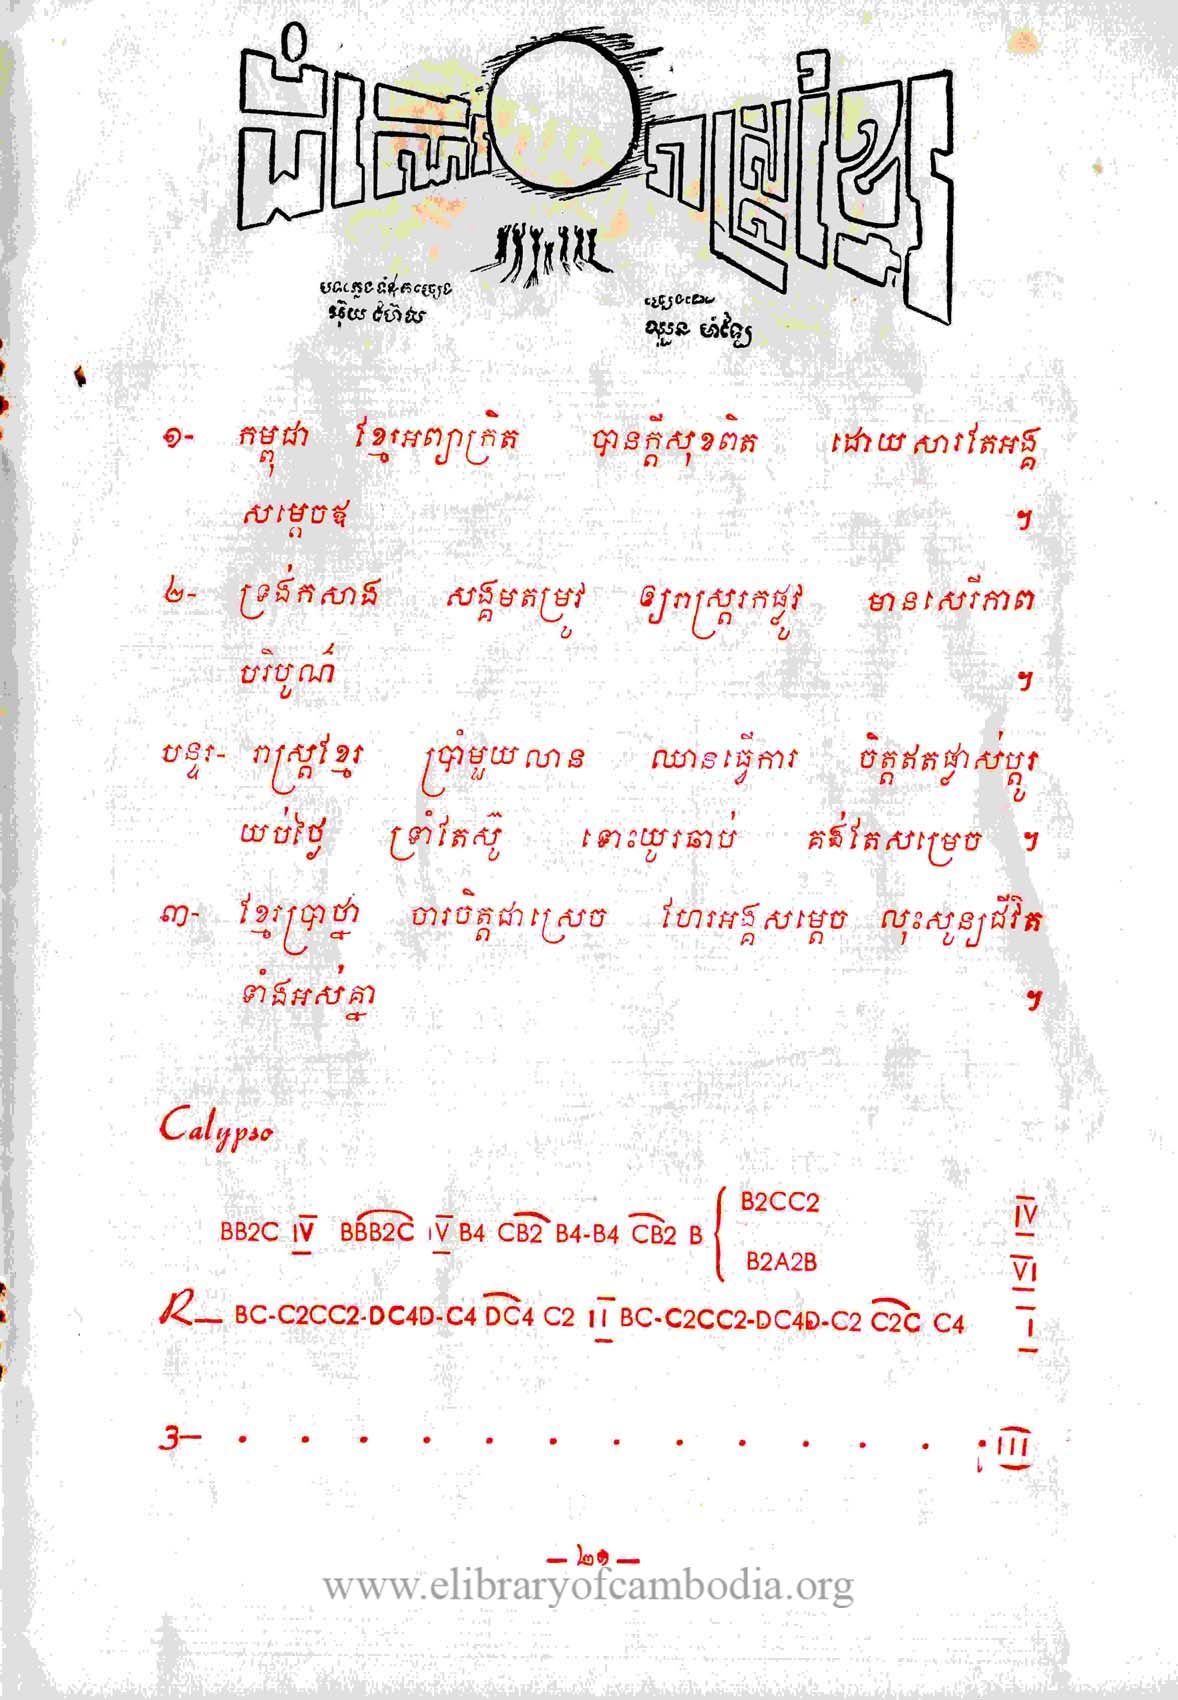 ដំណើររាស្ត្រខ្មែរ
បទភ្លេងទំនុកច្រៀង
ច្រៀងដោយ
ឈួន ម៉ាឡៃ
១- កម្ពុជា ខ្មែរអព្យាក្រិត បានក្តីសុខពិត ដោយសារតែអង្គ
សម្តេចឪ ។
២- ទ្រង់កសាង សង្គមតម្រូវ ឲ្យរាស្ត្ររកផ្លូវ មានសេរីភាព
បរិបូណ៌ ។
បន្ទរ- រាស្ត្រខ្មែរ ប្រាំមួយលាន ឈានធ្វើការ ចិត្តឥតផ្លាស់ប្តូរ
យប់ថ្ងៃ ទ្រាំតែស៊ូ ទោះយូរឆាប់ គង់តែសម្រេច ។
៣- ខ្មែរប្រាថ្នា ចារចិត្តជាស្រេច ហែរអង្គសម្តេច លុះសូន្យជីវិត
ទាំងអស់គ្នា ។
Calypso
BB2C IV BBB2C IV B4 CB2 B4-B4 CB2 B { B2CC2 IV
B2A2B VI
R— BC-C2CC2-DC4D-C4 DC4 C2 II BC-C2CC2-DC4D-C2 C2C C4 I
3— . . . . . . . . . . . . . III
— ២១ —
www.elibraryofcambodia.org